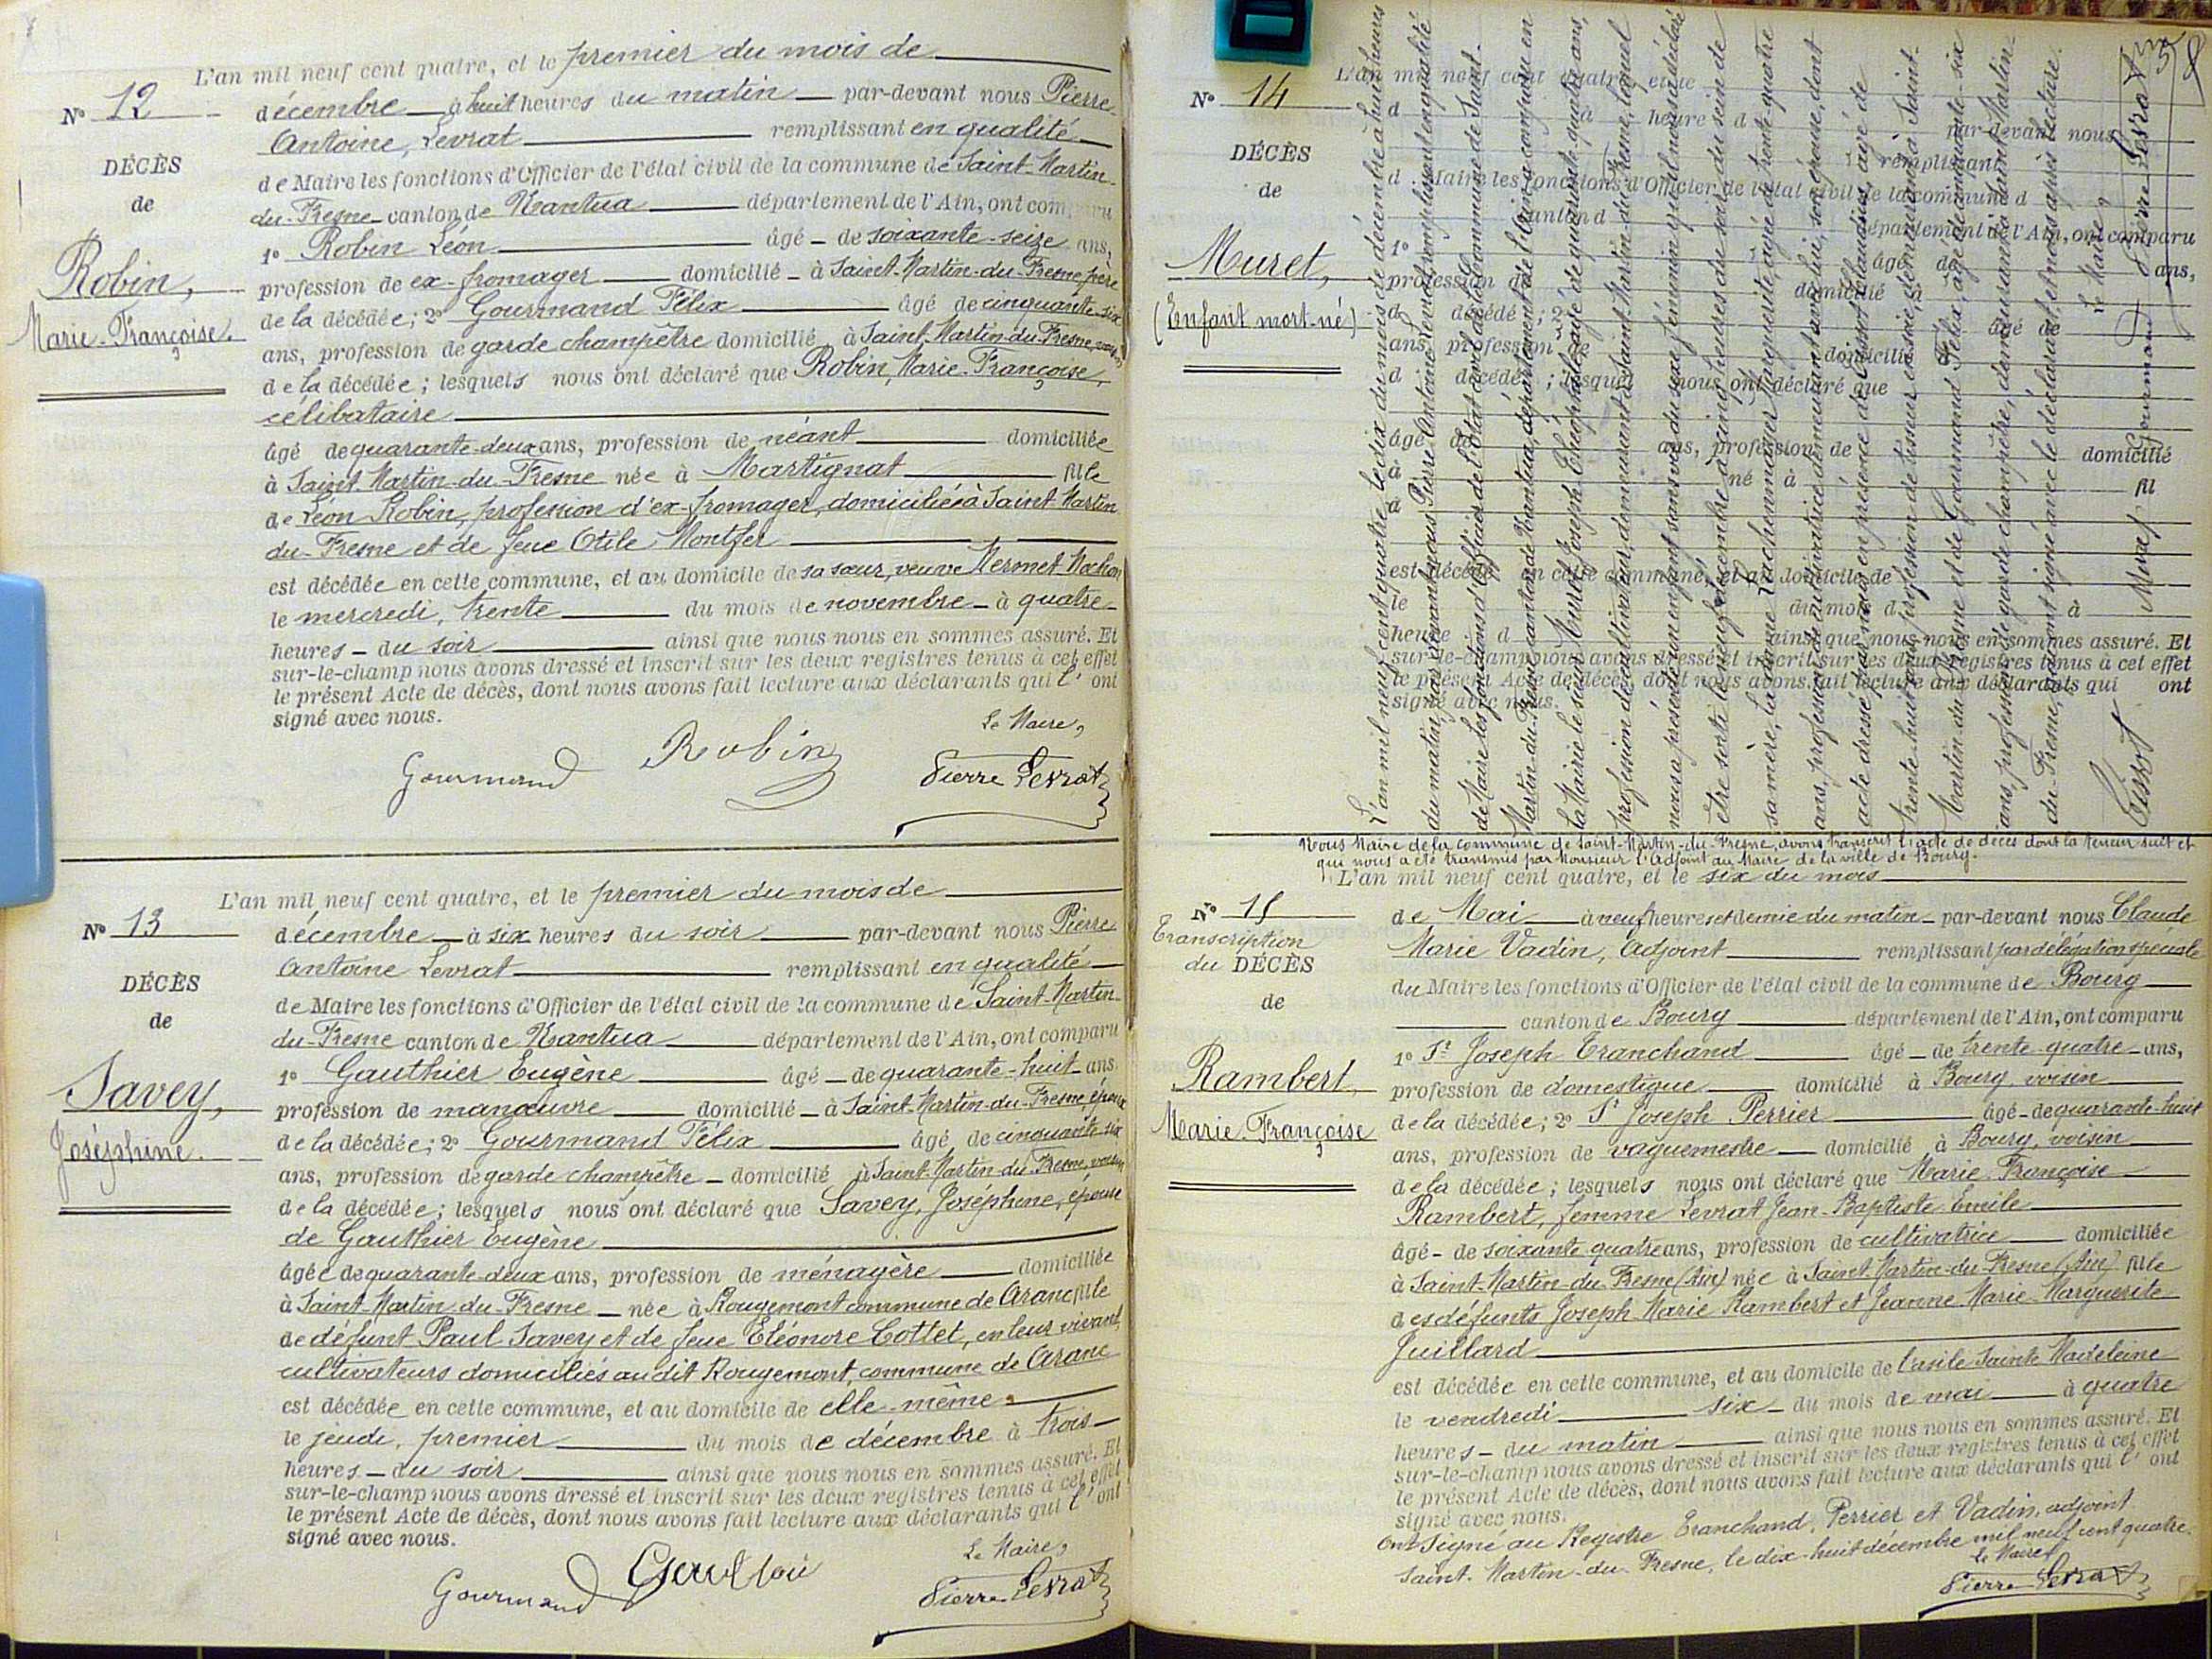 L'an mil neuf cent quatre, et le premier du mois de
N° 12
décembre à huit heures du matin par-devant nous Pierre
Antoine, Levrat remplissant en qualité
DÉCÈS
de Maire les fonctions d'Officier de l'état civil de la commune de Saint-Martin-
de
du-Fresne canton de Nantua département de l'Ain, ont comparu
1° Robin Léon âgé de soixante-seize ans,
Robin,
profession de ex-fromager domicilié à Saint-Martin-du-Fresne, père
de la décédée; 2° Gourmand Félix âgé de cinquante-six
Marie-Françoise.
ans, profession de garde champêtre domicilié à Saint-Martin-du-Fresne, voisin
de la décédée; lesquels nous ont déclaré que Robin, Marie-Françoise,
célibataire
âgé de quarante-deux ans, profession de néant domiciliée
à Saint-Martin-du-Fresne née à Martignat fille
de Léon Robin, profession d'ex-fromager, domicilié à Saint-Martin
du-Fresne et de feue Otile Montfer
est décédée en cette commune, et au domicile de sa sœur, veuve Mermet-Machon
le mercredi, trente du mois de novembre à quatre
heures du soir ainsi que nous nous en sommes assuré. Et
sur-le-champ nous avons dressé et inscrit sur les deux registres tenus à cet effet
le présent Acte de décès, dont nous avons fait lecture aux déclarants qui l'ont
signé avec nous.
Le Maire,
Gourmand Robin Pierre Levrat
L'an mil neuf cent quatre, et le premier du mois de
N° 13
décembre à six heures du soir par-devant nous Pierre
Antoine Levrat remplissant en qualité
DÉCÈS
de Maire les fonctions d'Officier de l'état civil de la commune de Saint-Martin-
de
du-Fresne canton de Nantua département de l'Ain, ont comparu
1° Gauthier Eugène âgé de quarante-huit ans
Savey,
profession de manœuvre domicilié à Saint-Martin-du-Fresne, époux
Joséphine.
de la décédée; 2° Gourmand Félix âgé de cinquante-six
ans, profession de garde champêtre domicilié à Saint-Martin-du-Fresne, voisin
de la décédée; lesquels nous ont déclaré que Savey, Joséphine, épouse
de Gauthier Eugène
âgée de quarante-deux ans, profession de ménagère domiciliée
à Saint-Martin-du-Fresne née à Rougemont commune de Aranc fille
de défunt Paul Savey et de feue Eléonore Cottet, en leur vivant,
cultivateurs domiciliés au dit Rougemont, commune de Aranc
est décédée en cette commune, et au domicile de elle-même
le jeudi, premier du mois de décembre à trois
heures du soir ainsi que nous nous en sommes assuré. Et
sur-le-champ nous avons dressé et inscrit sur les deux registres tenus à cet effet
le présent Acte de décès, dont nous avons fait lecture aux déclarants qui l'ont
signé avec nous.
Le Maire,
Gourmand Pierre Levrat
N° 14
DÉCÈS
de
Muret,
(Enfant mort-né)
L'an mil neuf cent quatre, et le
d à heure d par-devant nous
remplissant
d Maire les fonctions d'Officier de l'état civil de la commune d
canton d département de l'Ain, ont comparu
1° âgé de ans,
profession de domicilié à
d décédé ; 2° âgé de
ans, profession de domicilié
d décédé ; lesquels nous ont déclaré que
âgé de ans, profession de domicilié
à né à fil
d
est décédé en cette commune, et au domicile de
le du mois d à
heure d ainsi que nous nous en sommes assuré. Et
sur-le-champ nous avons dressé et inscrit sur les deux registres tenus à cet effet
le présent Acte de décès, dont nous avons fait lecture aux déclarants qui ont
signé avec nous.
L'an mil neuf cent quatre, le dix du mois de décembre à huit heures
du matin, par devant nous, Pierre Antoine Levrat remplissant en qualité
de Maire les fonctions d'Officier de l'état civil de la Commune de Saint-
Martin-du-Fresne, canton de Nantua, département de l'Ain, a comparu en
la Mairie le sieur Muret Joseph Théophile, âgé de quarante-quatre ans,
profession de cultivateur, demeurant à Saint-Martin-du-Fresne, lequel
nous a présenté un enfant sans vie du sexe féminin qu'il nous a déclaré
être sorti le neuf décembre à cinq heures du soir, du sein de
sa mère, la dame Marguerite, âgée de trente-quatre
ans, profession de cultivatrice demeurant avec lui, son épouse, dont
acte dressé par nous en présence de Tissot Claudius, âgé de
trente-huit ans, profession de tisseur en soie, demeurant à Saint-
Martin-du-Fresne et de Gourmand Félix, âgé de cinquante-six
ans, profession de garde champêtre, demeurant à Saint-Martin-
du-Fresne, qui ont signé avec le déclarant et nous après lecture.
Le Maire,
Tissot Muret Gourmand Pierre Levrat
Nous Maire de la commune de Saint-Martin-du-Fresne, avons transcrit l'acte de décès dont la teneur suit et
qui nous a été transmis par Monsieur l'Adjoint au Maire de la ville de Bourg.
L'an mil neuf cent quatre, et le six du mois
N° 15
de Mai à neuf heures et demie du matin par-devant nous Claude
Transcription
Marie Vadin, Adjoint remplissant par délégation spéciale
du DÉCÈS
du Maire les fonctions d'Officier de l'état civil de la commune de Bourg
de
canton de Bourg département de l'Ain, ont comparu
1° Sr Joseph Tranchand âgé de trente-quatre ans,
Rambert,
profession de domestique domicilié à Bourg, voisin
Marie-Françoise
de la décédée; 2° Sr Joseph Perrier âgé de quarante-huit
ans, profession de vaguemestre domicilié à Bourg, voisin
de la décédée; lesquels nous ont déclaré que Marie-Françoise
Rambert, femme Levrat Jean-Baptiste Emile
âgé de soixante-quatre ans, profession de cultivatrice domiciliée
à Saint-Martin-du-Fresne (Ain) née à Saint-Martin-du-Fresne (Ain) fille
des défunts Joseph-Marie Rambert et Jeanne-Marie-Marguerite
Juillard
est décédée en cette commune, et au domicile de l'asile Sainte Madeleine
le vendredi six du mois de mai à quatre
heures du matin ainsi que nous nous en sommes assuré. Et
sur-le-champ nous avons dressé et inscrit sur les deux registres tenus à cet effet
le présent Acte de décès, dont nous avons fait lecture aux déclarants qui l'ont
signé avec nous.
Ont signé au Registre Tranchand, Perrier et Vadin, adjoint
Saint-Martin-du-Fresne, le dix-huit décembre mil neuf cent quatre.
Le Maire,
Pierre Levrat